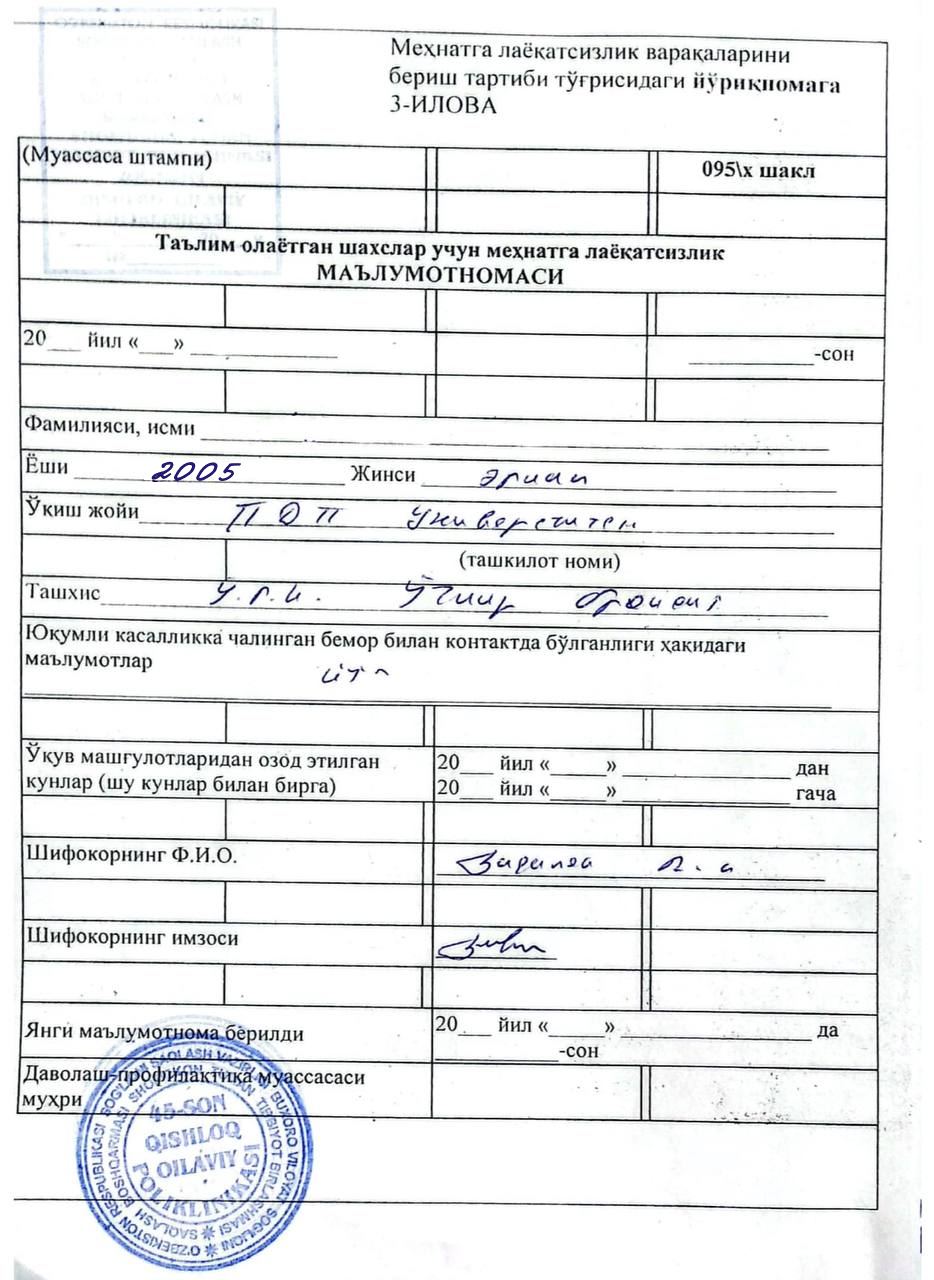 Меҳнатга лаёқатсизлик варақаларини
бериш тартиби тўғрисидаги йўриқномага
3-ИЛОВА
(Муассаса штампи)
095\х шакл
Таълим олаётган шахслар учун меҳнатга лаёқатсизлик
МАЪЛУМОТНОМАСИ
20___ йил «___» _____________ ___________-сон
Фамилияси, исми
Ёши 2005 Жинси эркак
Ўкиш жойи ПОП Университети
(ташкилот номи)
Ташхис Ў.Р.И. Ўткир
Юқумли касалликка чалинган бемор билан контактда бўлганлиги ҳақидаги
маълумотлар йўқ
Ўқув машғулотларидан озод этилган
кунлар (шу кунлар билан бирга)
20___ йил «_____» _______________ дан
20___ йил «_____» _______________ гача
Шифокорнинг Ф.И.О.
Шифокорнинг имзоси
Янги маълумотнома берилди
20___ йил «_____» _________________ да
___________-сон
Даволаш-профилактика муассасаси
муҳри
O'ZBEKISTON RESPUBLIKASI SOG'LIQNI SAQLASH VAZIRLIGI BUXORO VILOYATI SOG'LIQNI
SAQLASH BOSHQARMASI SHOFIRKON TUMAN TIBBIYOT BIRLASHMASI
45-SON
QISHLOQ
OILAVIY
POLIKLINIKASI